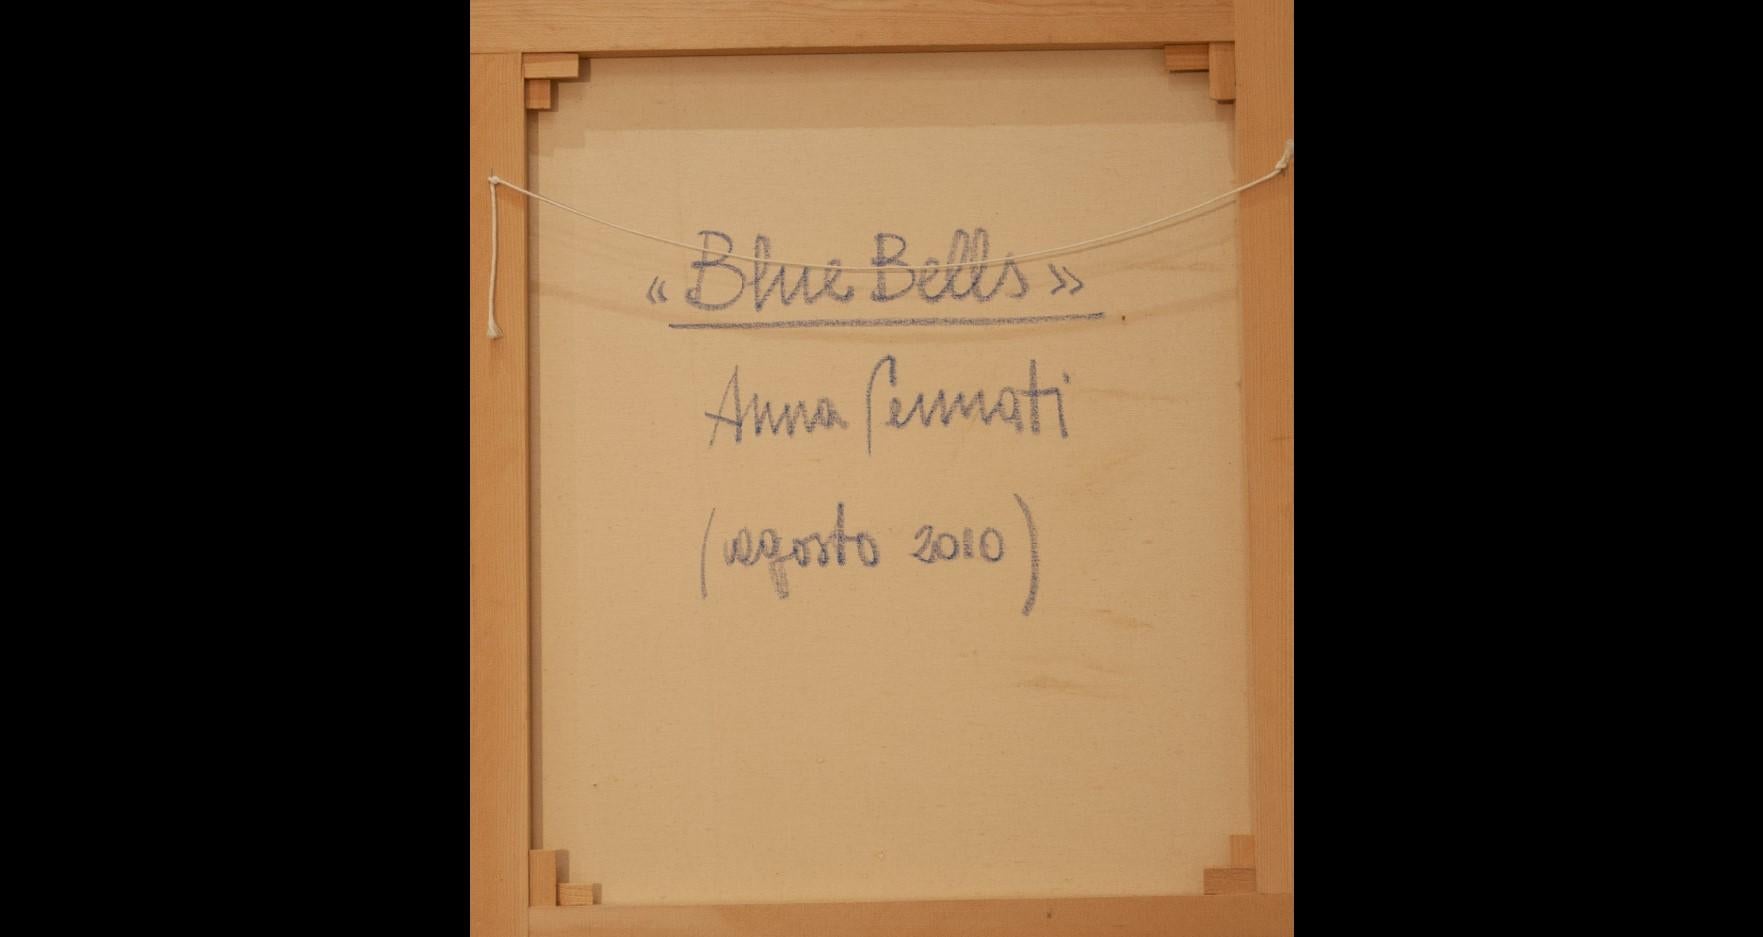 « Blue Bells »
Anna Pennati
(agosto 2010)